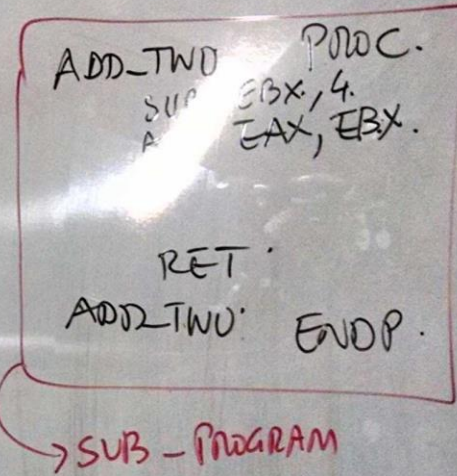 ADD_TWO PROC.
SUB EBX, 4.
EAX, EBX.
RET.
ADD_TWO. ENDP.
SUB - PROGRAM